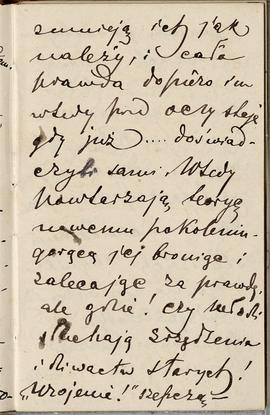 umieją ich jak
należy, i cała
prawda dopiero im
wtedy pod oczy staje
gdy już .... doświad-
czyli sami. Wtedy
powtarzają teoryę
nowemu pokoleniu
gorąco jej broniąc i
zalecając za prawdę,
ale gdzie! czy młodzi
słuchają zrzędzenia
i dziwactw starych!
"Urojenie!" szepczą